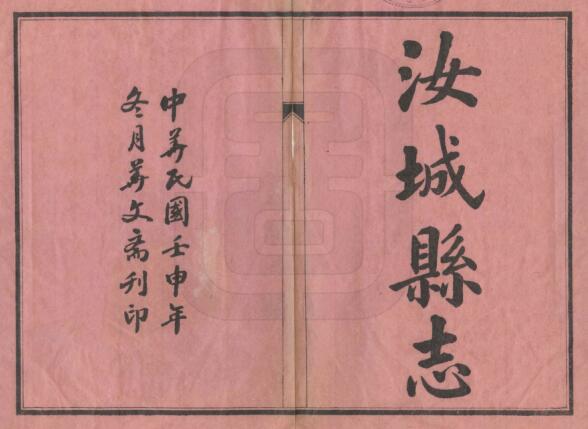 汝城縣志
中華民國壬申年
冬月華文斋刊印